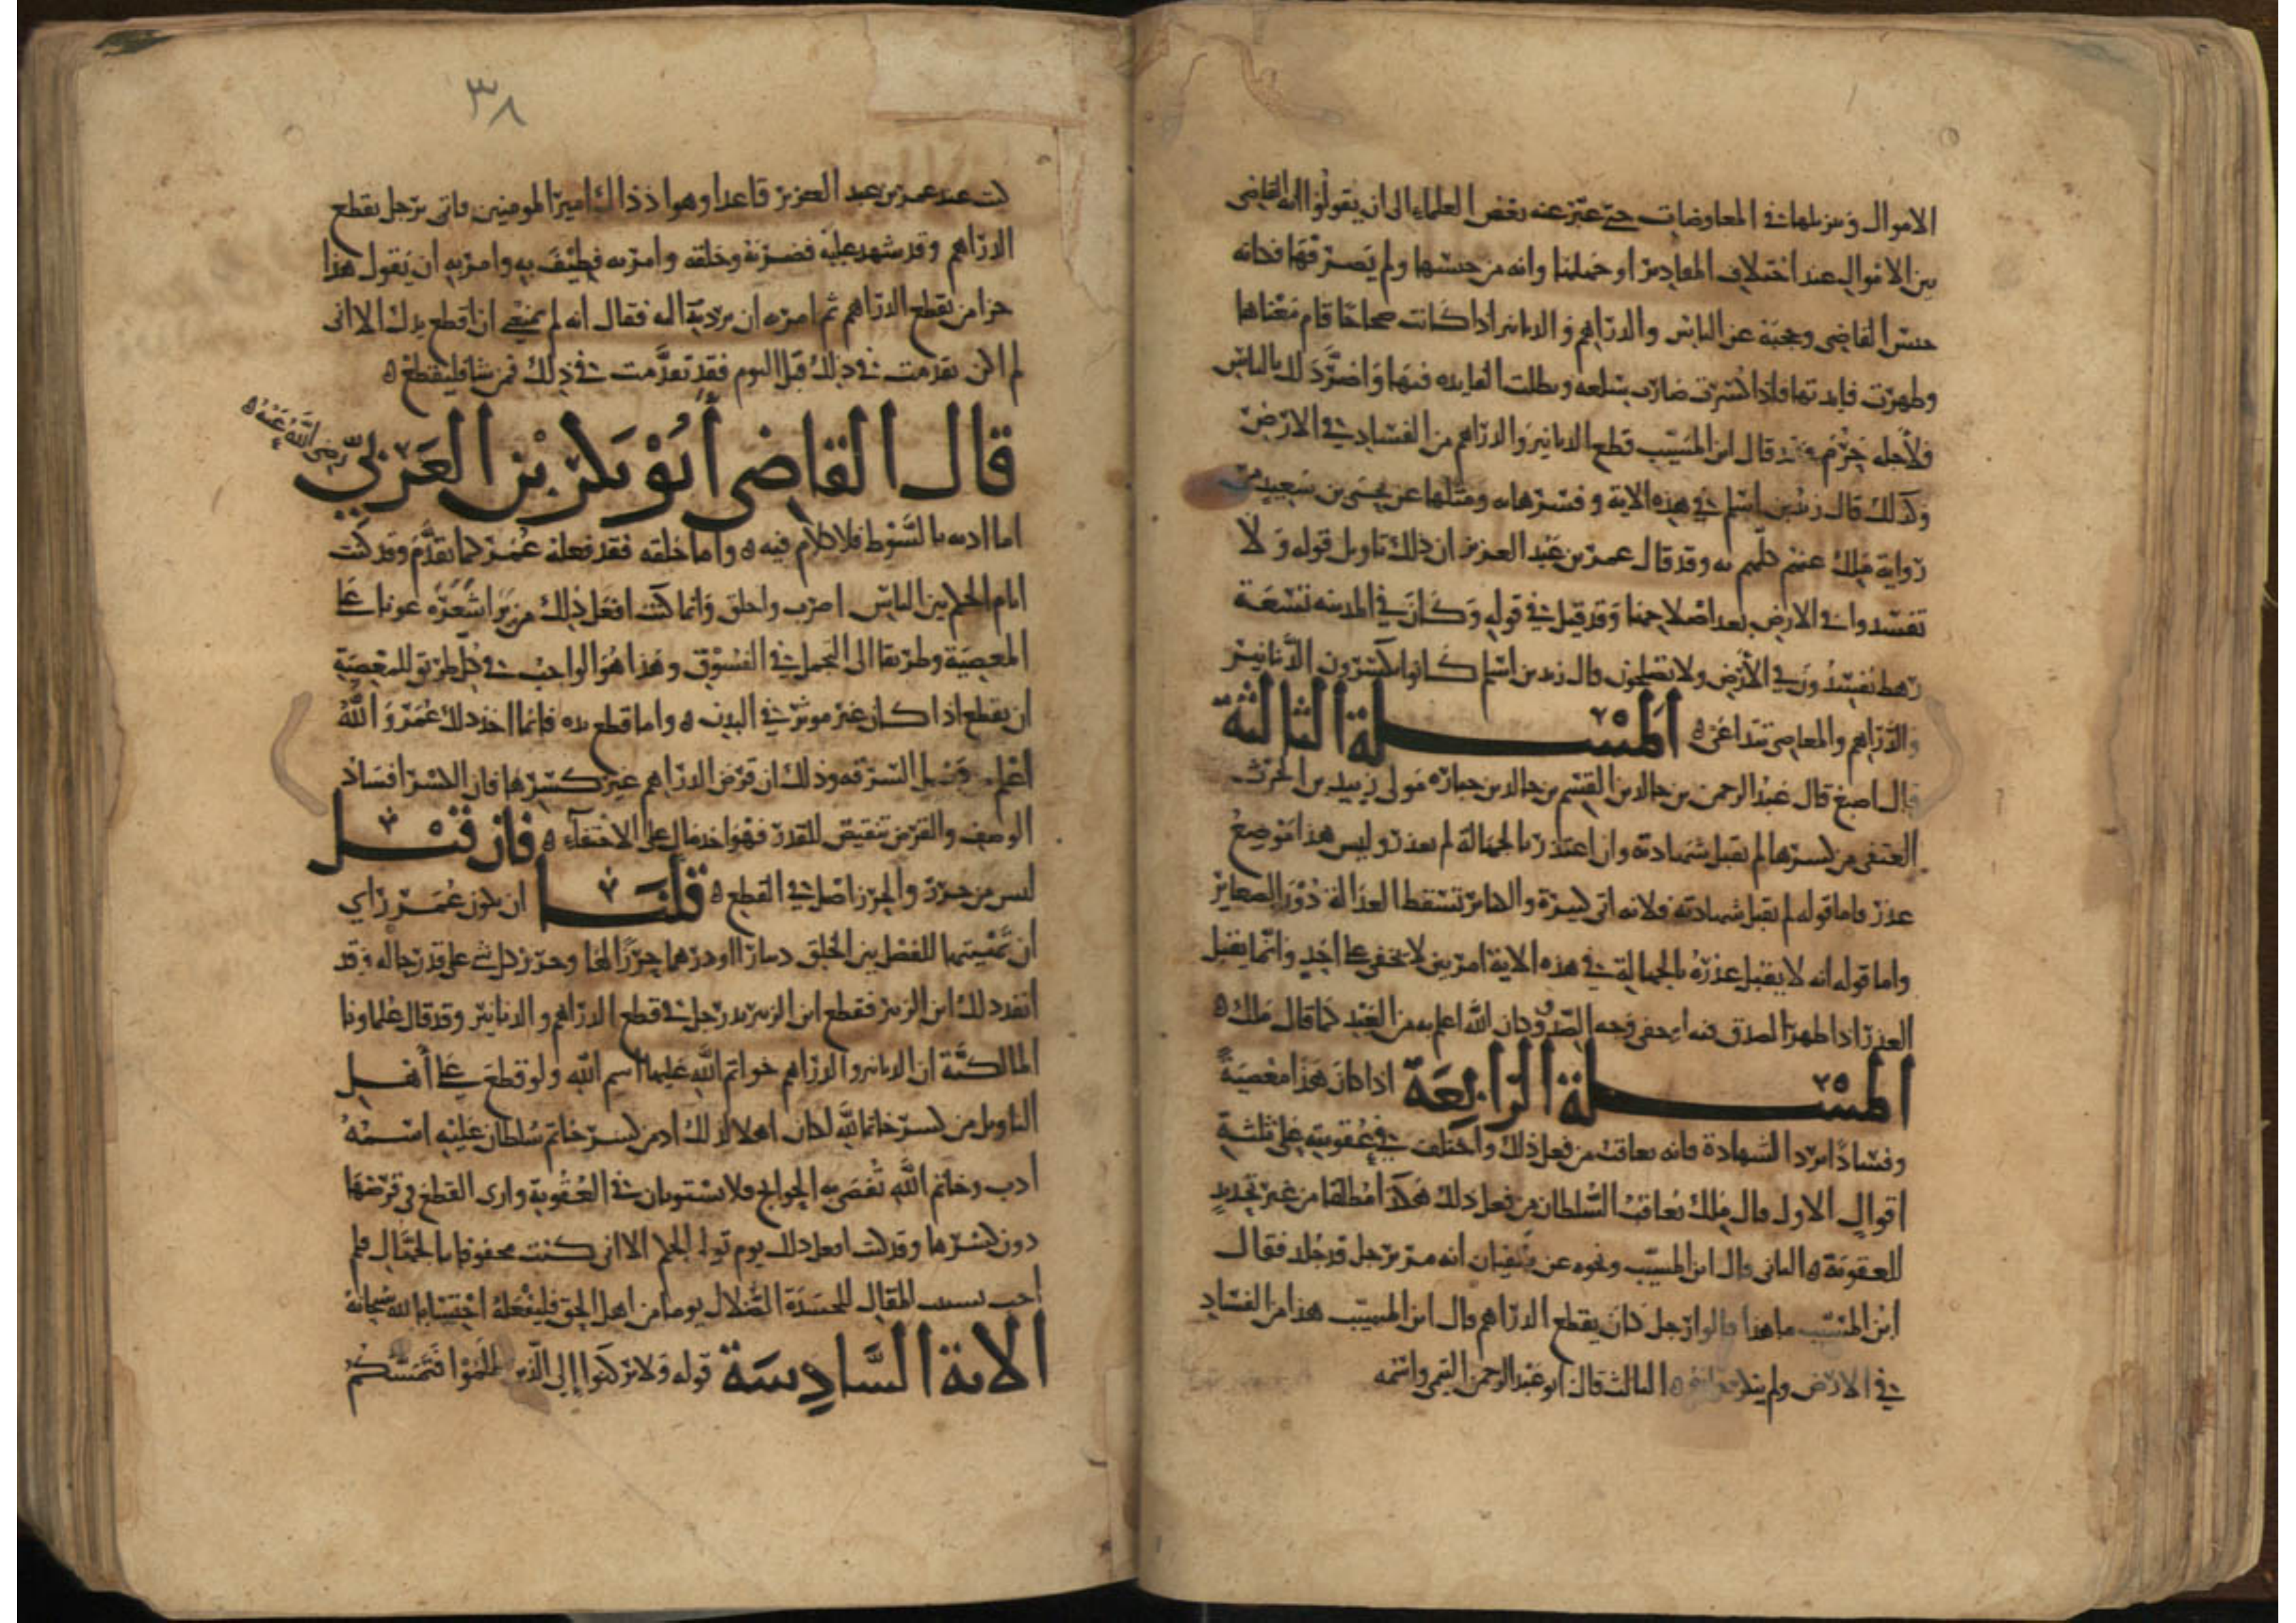 الاموال وتنزيلها في المعاوضات حتى عبر عنه بعض العلماء الى ان يقولوا انها القاضي
بين الاموال عند اختلاف المقادير او جهلها وانه من حبسها ولم يصرفها فكانه
حبس القاضي وحجبه عن الناس والدراهم والدنانير اذا كانت صحاحا قام معناها
وظهرت فايدتها فاذا كسرت صارت سلعه وبطلت الفايده فيها فاضر ذلك بالناس
فلاجله حرم وقد قال ابن المسيب قطع الدنانير والدراهم من الفساد في الارض
وكذلك قال زيد بن اسلم في هذه الاية وفسرها به ومثلها عن يحيى بن سعيد من
رواية ملك عنهم كلهم به وقد قال عمر بن عبد العزيز ان ذلك تاويل قوله ولا
تفسدوا في الارض بعد اصلاحها وقد قيل في قوله وكان في المدينه تسعة
رهط يفسدون في الارض ولا يصلحون قال زيد بن اسلم كانوا يكسرون الدنانير
والدراهم والمعاصي تتداعى ه المسلة الثالثة
قال اصبغ قال عبد الرحمن بن خالد بن القسم بن خالد بن جنادة مولى زبيد بن الحرث
العتقي من كسرها لم تقبل شهادته وان اعتذر بالجهالة لم يعذر وليس هذا موضع
عذر فاما قوله لم تقبل شهادته فلانه اتى كبيرة والكباير تسقط العدالة دون الصغاير
واما قوله انه لا يقبل عذره بالجهالة في هذه الاية امر بين لا يخفى على احد وانما يقبل
العذر اذا ظهر الصدق فيه او خفي وجه الصدق وكان الله اعلم به من العبد كما قال ملك ه
المسلة الرابعة اذا كان هذا معصية
وفسادا يرد الشهادة فانه يعاقب من فعل ذلك واختلف في عقوبته على ثلثة
اقوال الاول قال ملك يعاقب السلطان من فعل ذلك هكذا مطلقا من غير تحديد
للعقوبة ه الثاني قال ابن المسيب ونحوه عن سفيان انه مر برجل قد جلد فقال
ابن المسيب ما هذا قالوا رجل كان يقطع الدراهم قال ابن المسيب هذا من الفساد
في الارض ولم ينكر ه الثالث قال ابو عبد الرحمن التيمي واسمه
٣٨
كنت عند عمر بن عبد العزيز قاعدا وهو اذ ذاك امير المومنين فاتى برجل يقطع
الدراهم وقد شهد عليه فضربه وحلقه وامر به فطيف به وامر به ان يقول هذا
جزا من يقطع الدراهم ثم امر به ان يرد اليه فقال انه لم يمنعني ان اقطع يدك الا انى
لم اكن تقدمت في ذلك قبل اليوم فقد تقدمت في ذلك فمن شا فليقطع ه
قال القاضي أبو بكر بن العربي رضي الله عنه ه
اما ادبه بالسوط فلا كلام فيه ه واما حلقه فقد فعله عمر كما تقدم وقد كنت
ايام الحكم بين الناس اضرب واحلق وانما كنت افعل ذلك من يرا شعره عونا على
المعصية وطريقا الى التجمل في الفسوق وهذا هو الواجب في كل طريق للمعصية
ان يقطع اذا كان غير موثر في البدن ه واما قطع يده فانما اخذ ذلك عمر والله
اعلم من السرقه وذلك ان قرض الدراهم غير كسرها فان الكسر افساد
الوصف والقرض تنقيص للقدر فهو اخذ مال على الاختفاء ه فان قيل
ليس من حرز والحرز اصل في القطع ه قلنا ان يكون عمر راي
ان تهييتها للفصل بين الخلق دينارا او درهما حرزا لها وحرز كل شي على قدر حاله وقد
انفد ذلك ابن الزبير فقطع ابن الزبير يد رجل في قطع الدراهم والدنانير وقد قال علماونا
المالكية ان الدنانير والدراهم خواتم الله عليها اسم الله ولو قطع على أهل
التاويل من كسر خاتما لله لكان اهلا لذلك او من كسر خاتم سلطان عليه اسمه
ادب وخاتم الله تقضى به الحوايج فلا يستويان في العقوبة وارى القطع في قرضها
دون كسرها وقد كنت افعل ذلك يوم تولي الحكم الا انى كنت محفوفا بالجهال فلم
اجب بسبب المقال للحسدة الضلال يوما من اهل الحق فليفعله احتسابا لله سبحانه
الاية السادسة قوله ولا تركنوا إلى الذين ظلموا فتمسكم